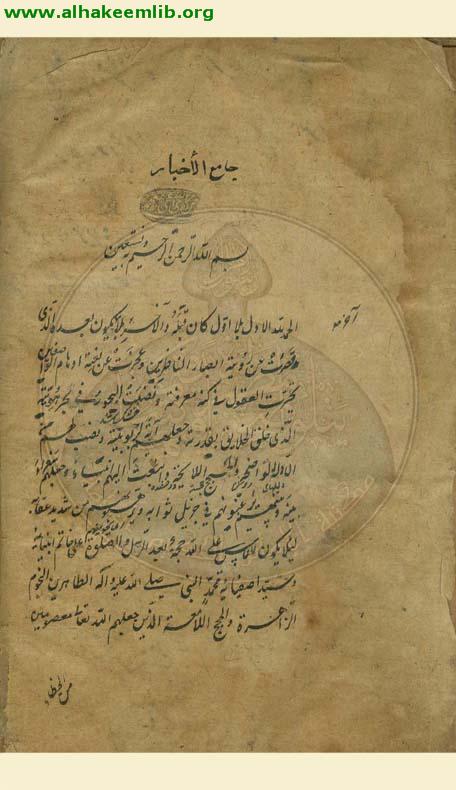 www.alhakeemlib.org
جامع الأخبار
بسم الله الرحمن الرحيم وبه نستعين
الحمد لله الاول بلا اول كان قبله والآخر بلا آخر يكون بعده الذي
قصرت عن رؤيته ابصار الناظرين وعجزت عن نعته اوهام الواصفين
تحيرت العقول في كنه معرفته
الذي خلق الخلايق بقدرته وجعلهم آية لربوبيته ونصب لهم
الادلة الواضحة والحجج اللايحة وبعث اليهم انبياء وجعلهم سفراء
بينه وبينهم يرغبونهم في جزيل ثوابه ويرهبونهم من شديد عقابه
ليلا يكون للناس على الله حجة بعد الرسل والصلوة على خاتم انبيائه
وسيد اصفيائه محمد النبي صلى الله عليه وآله الطاهرين النجوم
الزاهرة والحجج اللامعة الذين جعلهم الله تعالى معصومين
من الخطا